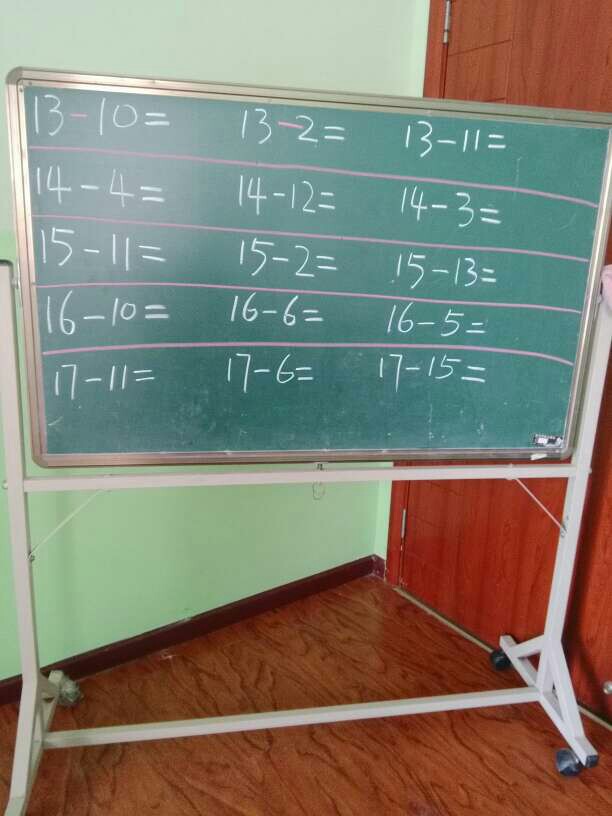 13-10= 13-2= 13-11=
14-4= 14-12= 14-3=
15-11= 15-2= 15-13=
16-10= 16-6= 16-5=
17-11= 17-6= 17-15=